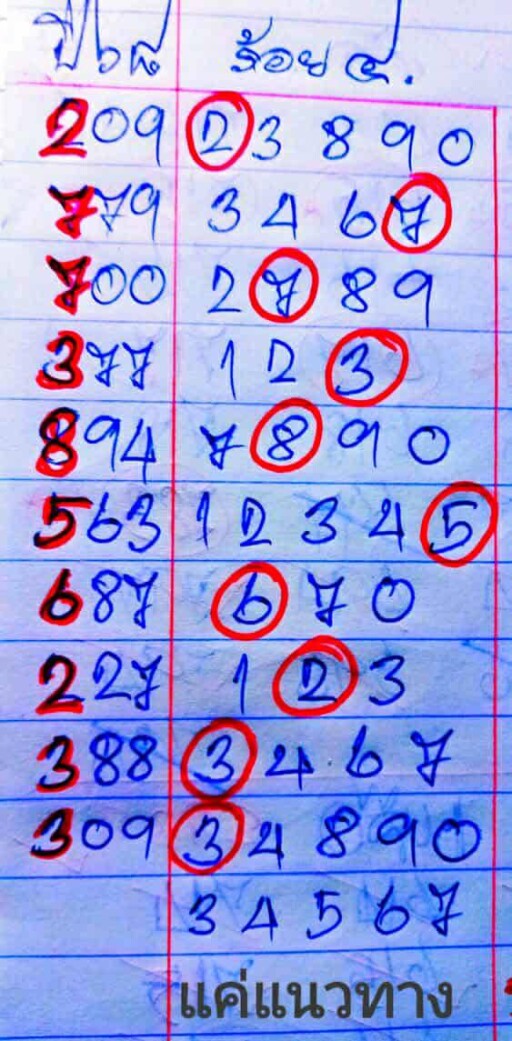 ปี๖๘ ร้อย ๔.
209 2 3 8 9 0
779 3 4 6 7
700 2 7 8 9
377 1 2 3
894 7 8 9 0
563 1 2 3 4 5
687 6 7 0
227 1 2 3
388 3 4 6 7
309 3 4 8 9 0
3 4 5 6 7
แค่แนวทาง